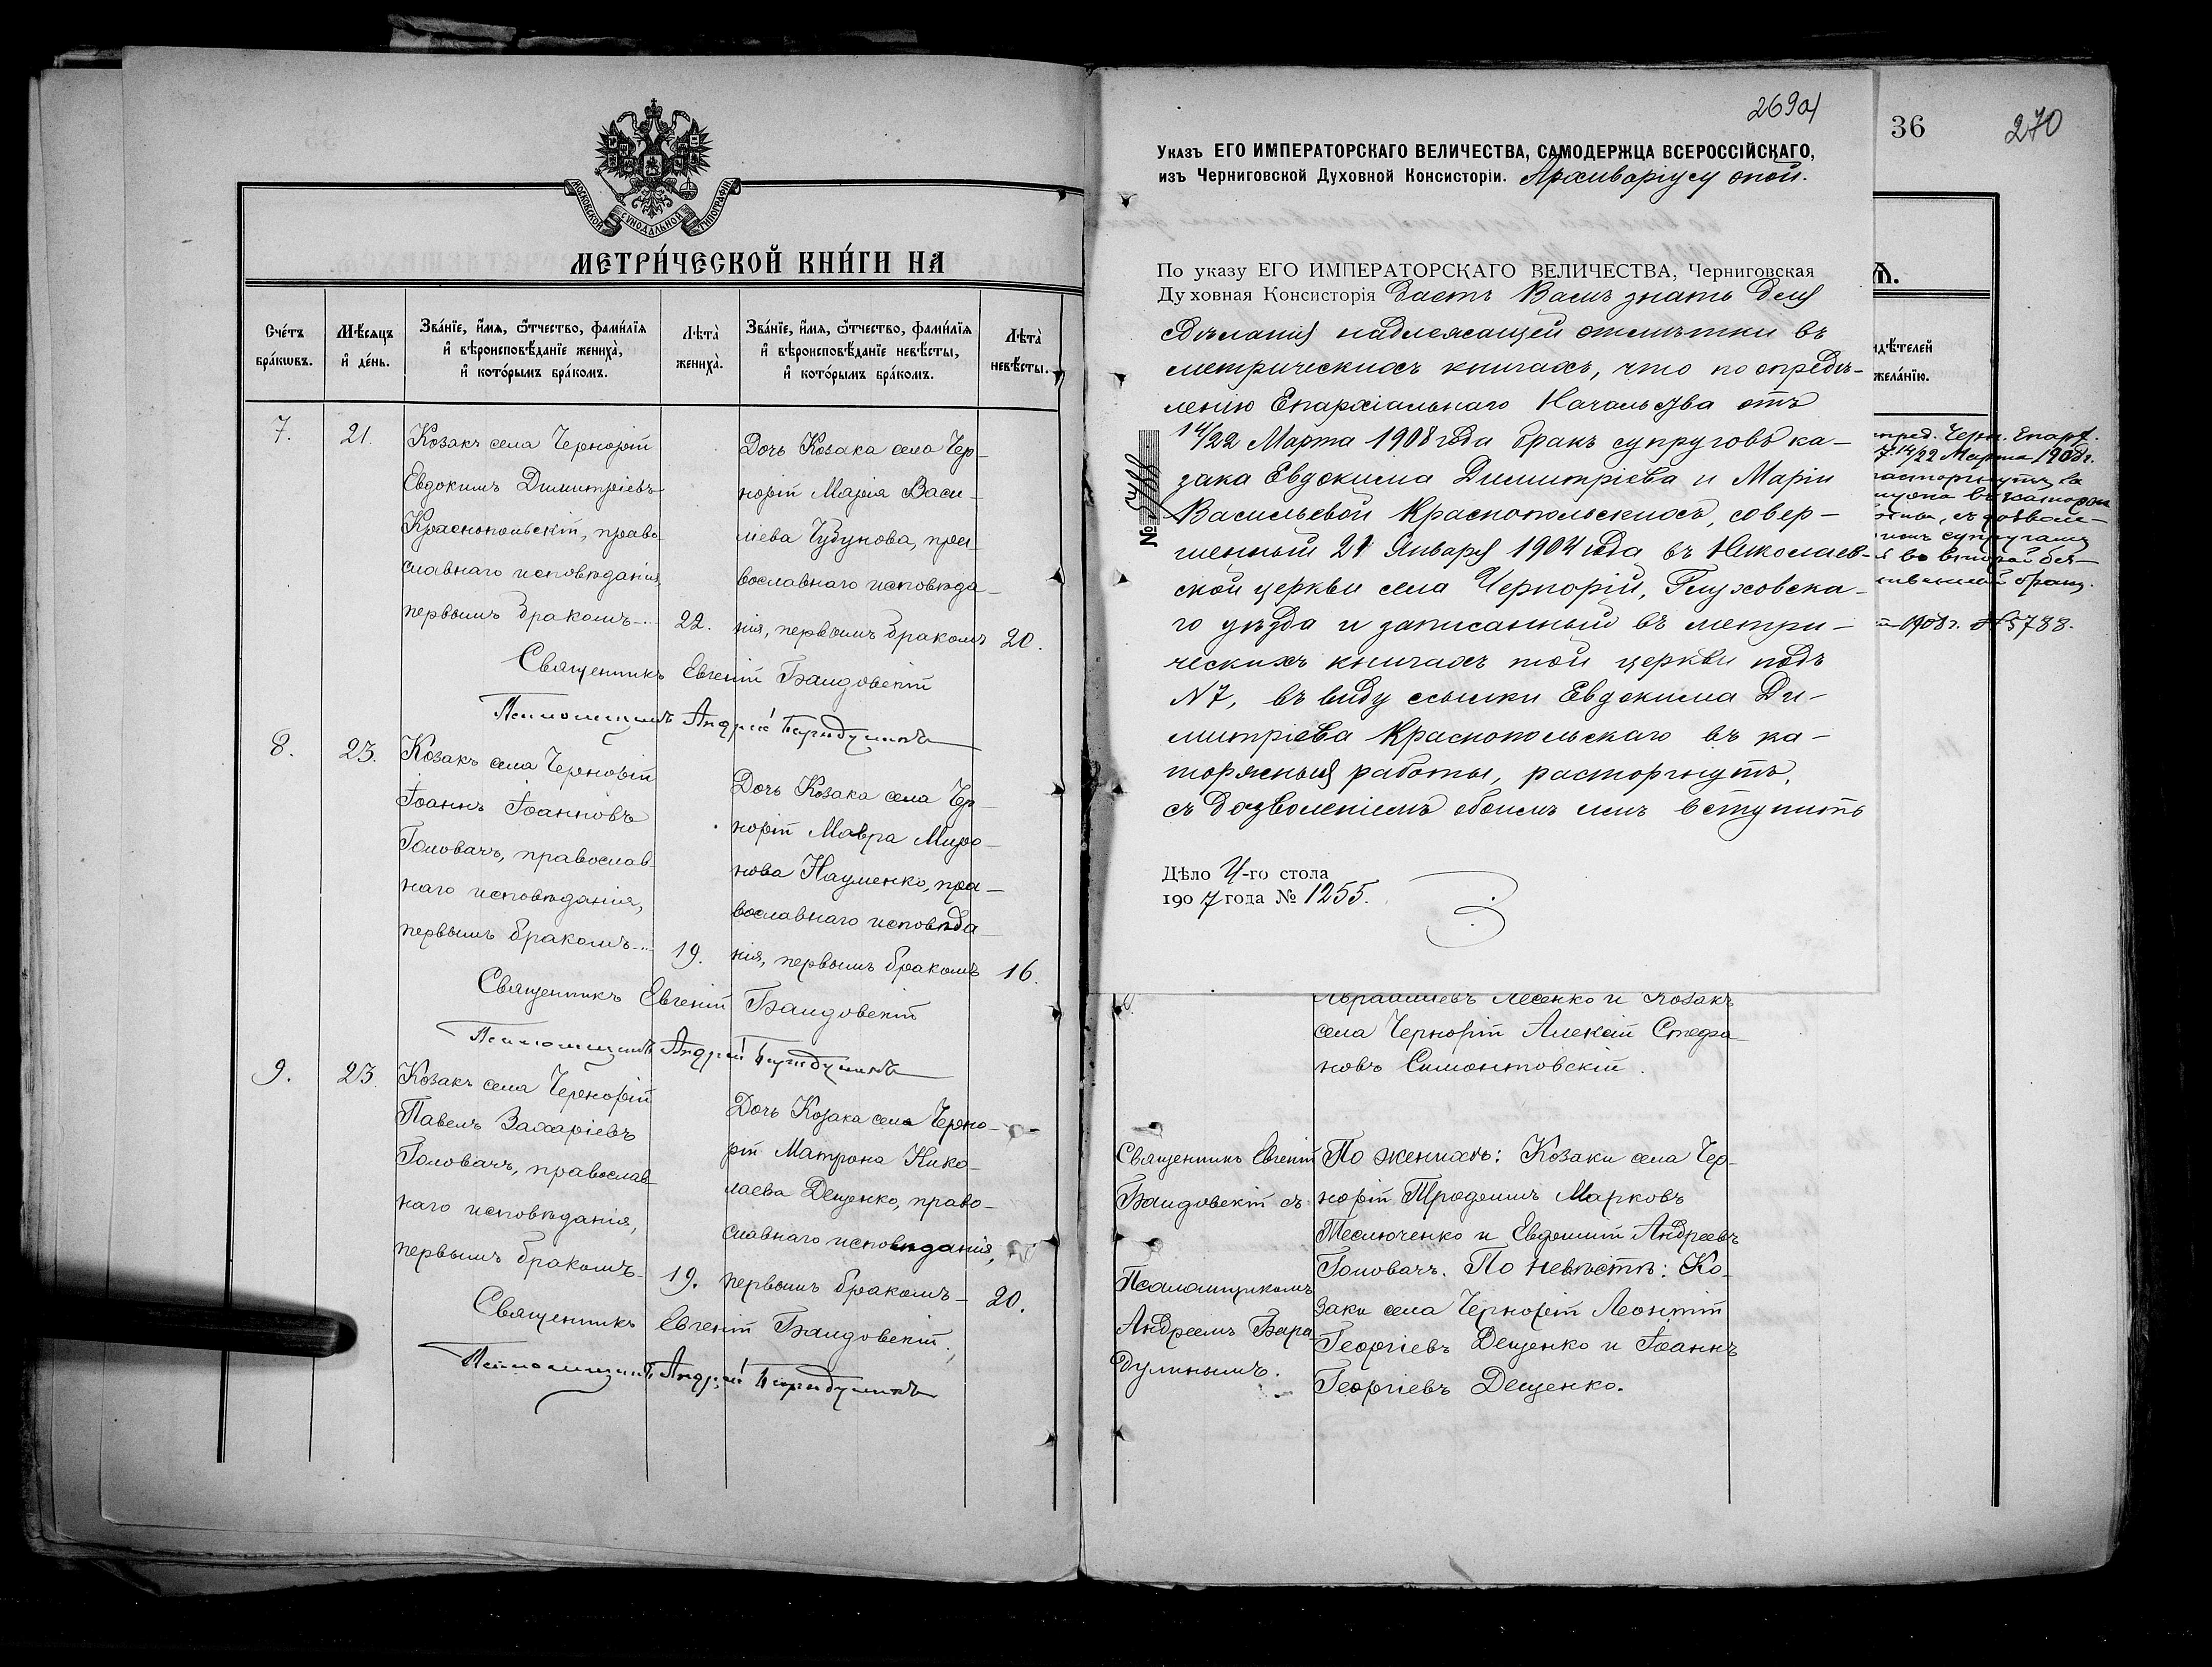 МОСКОВСКОЙ СѴНОДАЛЬНОЙ ТИПОГРАФІИ
МЕТРИ́ЧЕСКОЙ КНИ́ГИ НА
Сче́тъ
бра́кωвъ.
Мѣ́сяцъ
и҆ де́нь.
Зва́нїе, и҆́мя, ѻ҆́тчество, фами́лїя
и҆ вѣроисповѣ́данїе жениха̀,
и҆ кото́рымъ бра́комъ.
Лѣта̀
жениха̀.
Зва́нїе, и҆́мя, ѻ҆́тчество, фами́лїя
и҆ вѣроисповѣ́данїе невѣ́сты,
и҆ кото́рымъ бра́комъ.
Лѣта̀
невѣ́сты.
7.
21.
Козакъ села Чернорій
Евдокимъ Димитріевъ
Краснопольскій, право-
славнаго исповѣданія,
первымъ бракомъ
22.
Дочь Козака села Чер-
норій Марія Васи-
ліева Чубунова, пра-
вославнаго исповѣда-
нія, первымъ бракомъ
20.
Священникъ Евгеній
Псаломщикъ Андрей Барадулинъ
8.
23.
Козакъ села Чернорій
Іоаннъ Іоанновъ
Головачъ, православ-
наго исповѣданія,
первымъ бракомъ
19.
Дочь Козака села Чер-
норій Мавра Миро-
нова Науменко, пра-
вославнаго исповѣда-
нія, первымъ бракомъ
16.
Священникъ Евгеній
Псаломщикъ Андрей Барадулинъ
9.
23.
Козакъ села Чернорій
Павелъ Захаріевъ
Головачъ, православ-
наго исповѣданія,
первымъ бракомъ
19.
Дочь Козака села Черно-
рій Матрона Нико-
лаева Дещенко, право-
славнаго исповѣданія,
первымъ бракомъ
20.
Священникъ Евгеній
Псаломщикъ Андрей Барадулинъ
269а
Указъ ЕГО ИМПЕРАТОРСКАГО ВЕЛИЧЕСТВА, САМОДЕРЖЦА ВСЕРОССІЙСКАГО,
изъ Черниговской Духовной Консисторіи. Архиваріусу оной.
По указу ЕГО ИМПЕРАТОРСКАГО ВЕЛИЧЕСТВА, Черниговская
Духовная Консисторія даетъ Вамъ знать для
дѣланія надлежащей отмѣтки въ
метрическихъ книгахъ, что по опредѣ-
ленію Епархіальнаго Начальства отъ
14/22 Марта 1908 года бракъ супруговъ ка-
зака Евдокима Димитріева и Маріи
Васильевой Краснопольскихъ, совер-
шенный 21 Января 1904 года въ Николаев-
ской церкви села Чернорій, Глуховска-
го уѣзда и записанный въ метри-
ческихъ книгахъ той церкви подъ
№ 7, въ виду ссылки Евдокима Ди-
митріева Краснопольскаго въ ка-
торжныя работы, расторгнутъ,
съ дозволеніемъ обоимъ имъ вступить
№ 5788
Дѣло 4-го стола
1907 года № 1255.
36
270
ѧ.
идѣ́телей
жела́нїю.
опред. Черн. Епарх.
14/22 Марта 1908г.
расторгнутъ за
въ каторж
съ дозвол-
имъ супругамъ
во второй
бракъ.
1908г. № 5788.
Авраміевъ Лесенко и Козакъ
села Чернорій Алексій Стефа-
новъ Симонтовскій.
Священникъ Евгеній
съ
Псаломщикомъ
Андреемъ Бара-
дулинымъ.
По женихѣ: Козаки села Чер-
норій Марковъ
Теслюченко и Андреевъ
Головачъ. По невѣстѣ: Ко-
заки села Чернорій Леонтій
Георгіевъ Дещенко и Іоаннъ
Георгіевъ Дещенко.